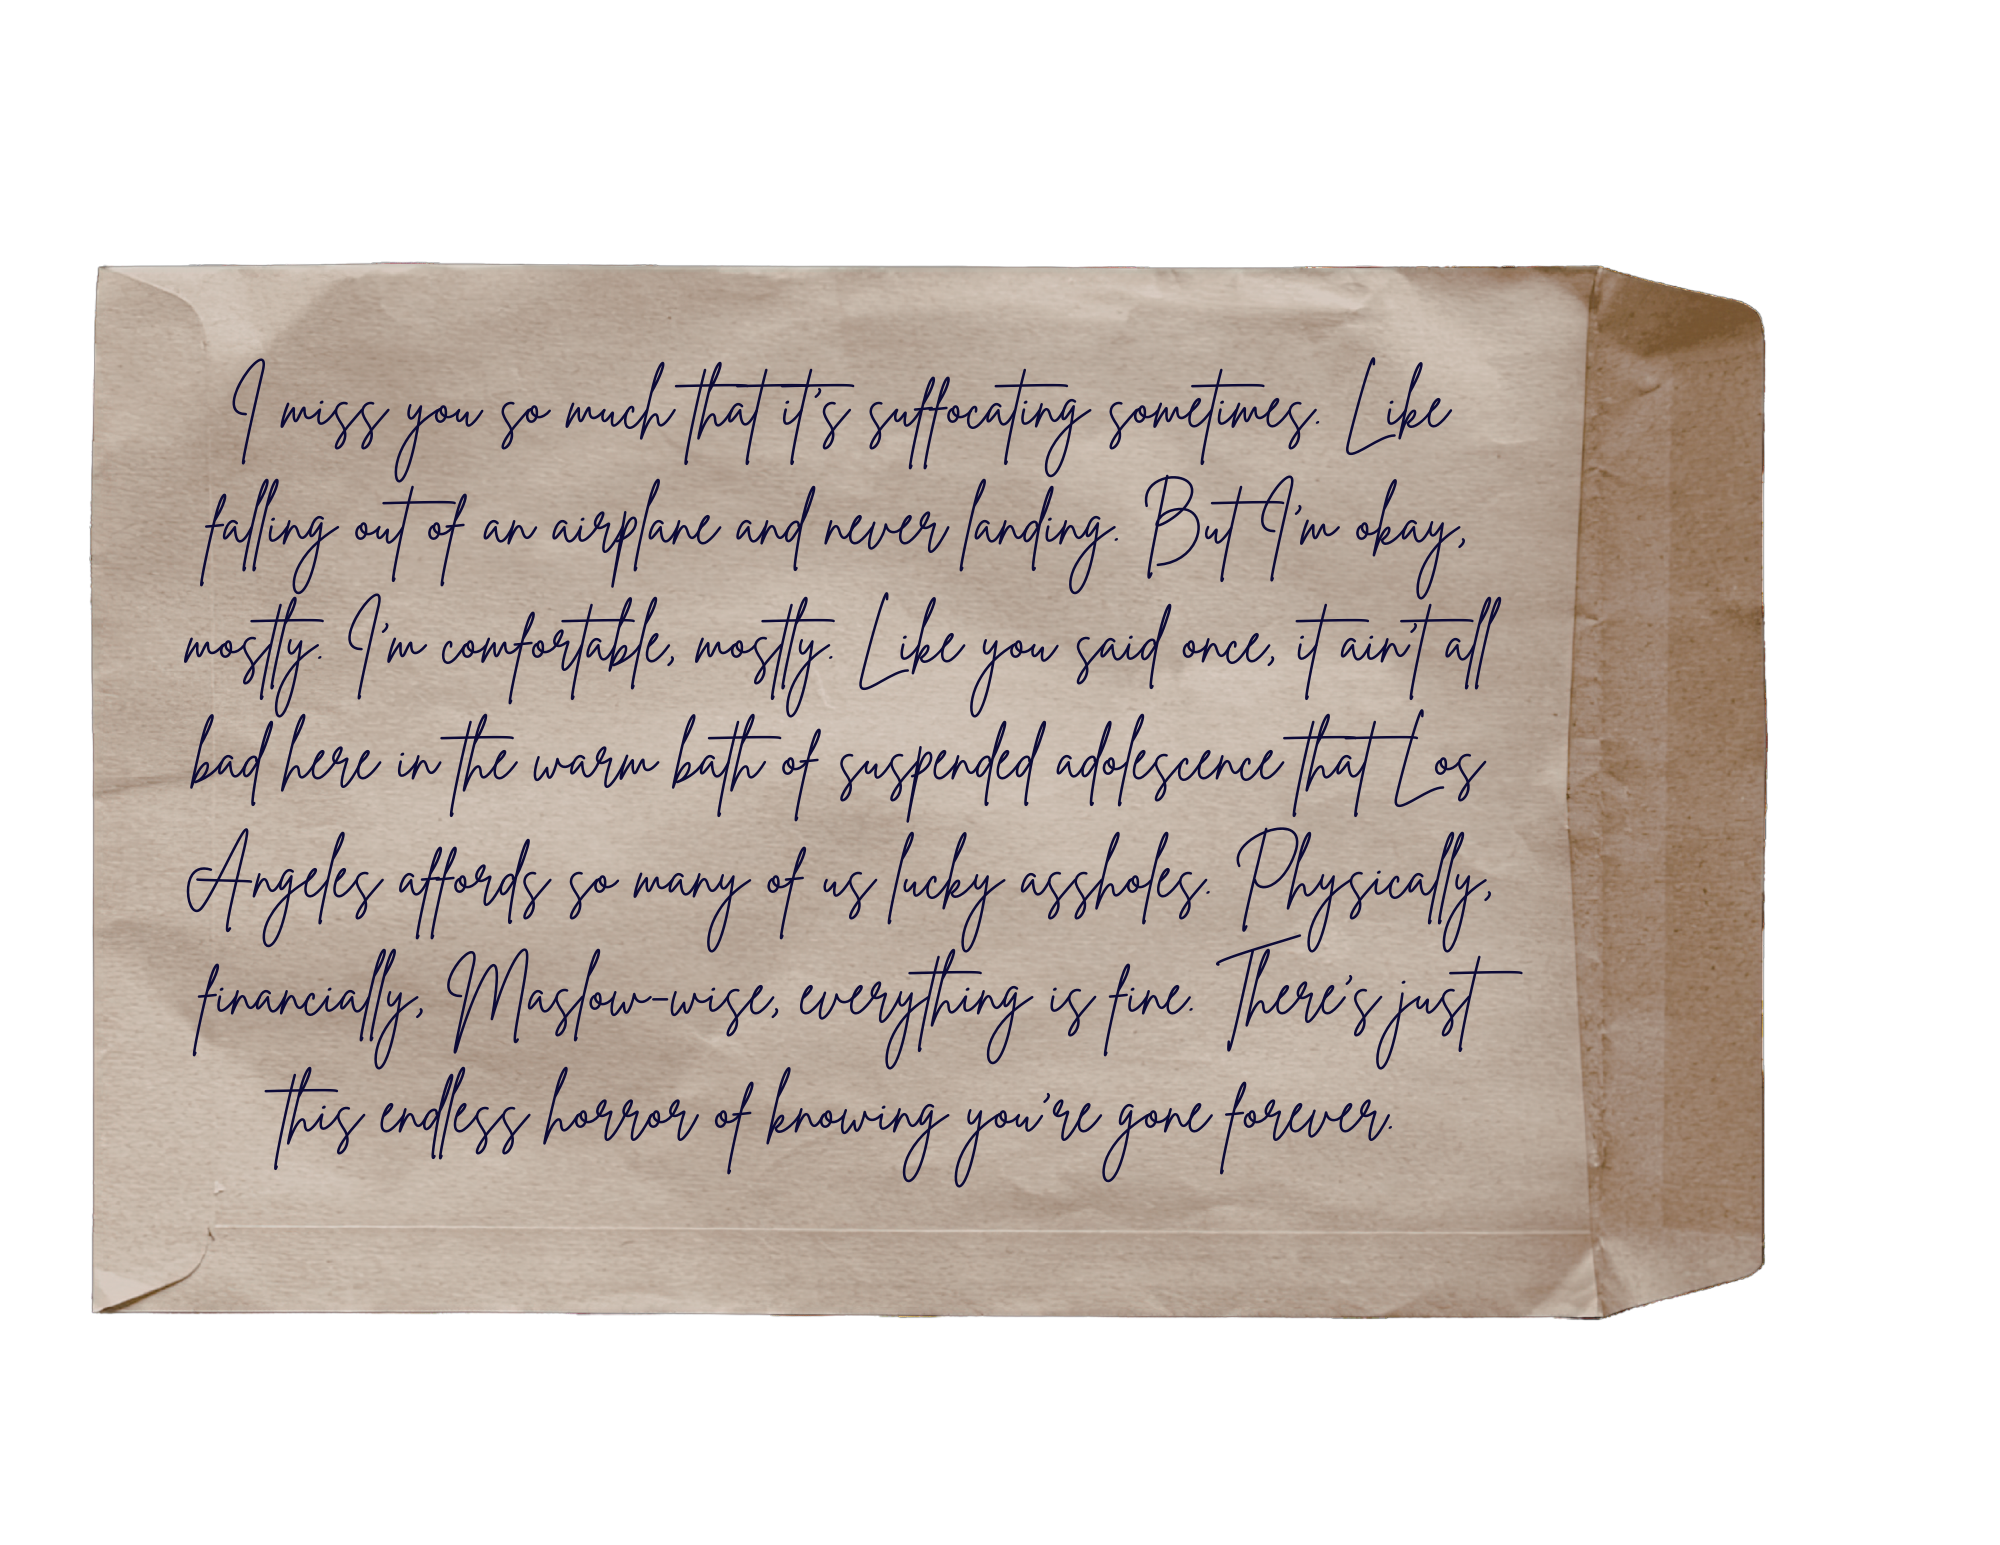 I miss you so much that it's suffocating sometimes. Like
falling out of an airplane and never landing. But I'm okay,
mostly. I'm comfortable, mostly. Like you said once, it ain't all
bad here in the warm bath of suspended adolescence that Los
Angeles affords so many of us lucky assholes. Physically,
financially, Maslow-wise, everything is fine. There's just
this endless horror of knowing you're gone forever.